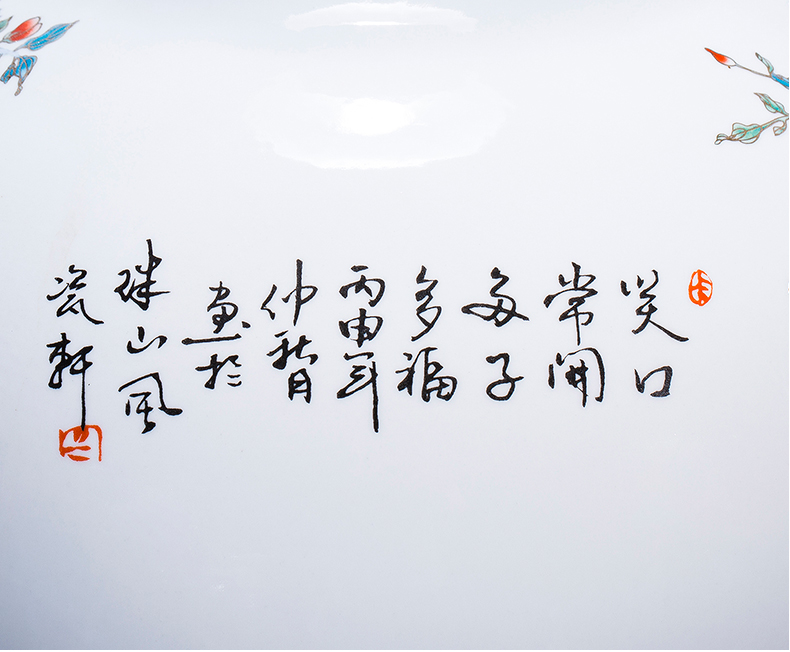 笑口
常開
多子
多福
丙申年
仲秋月
画於
珠山風
瓷軒